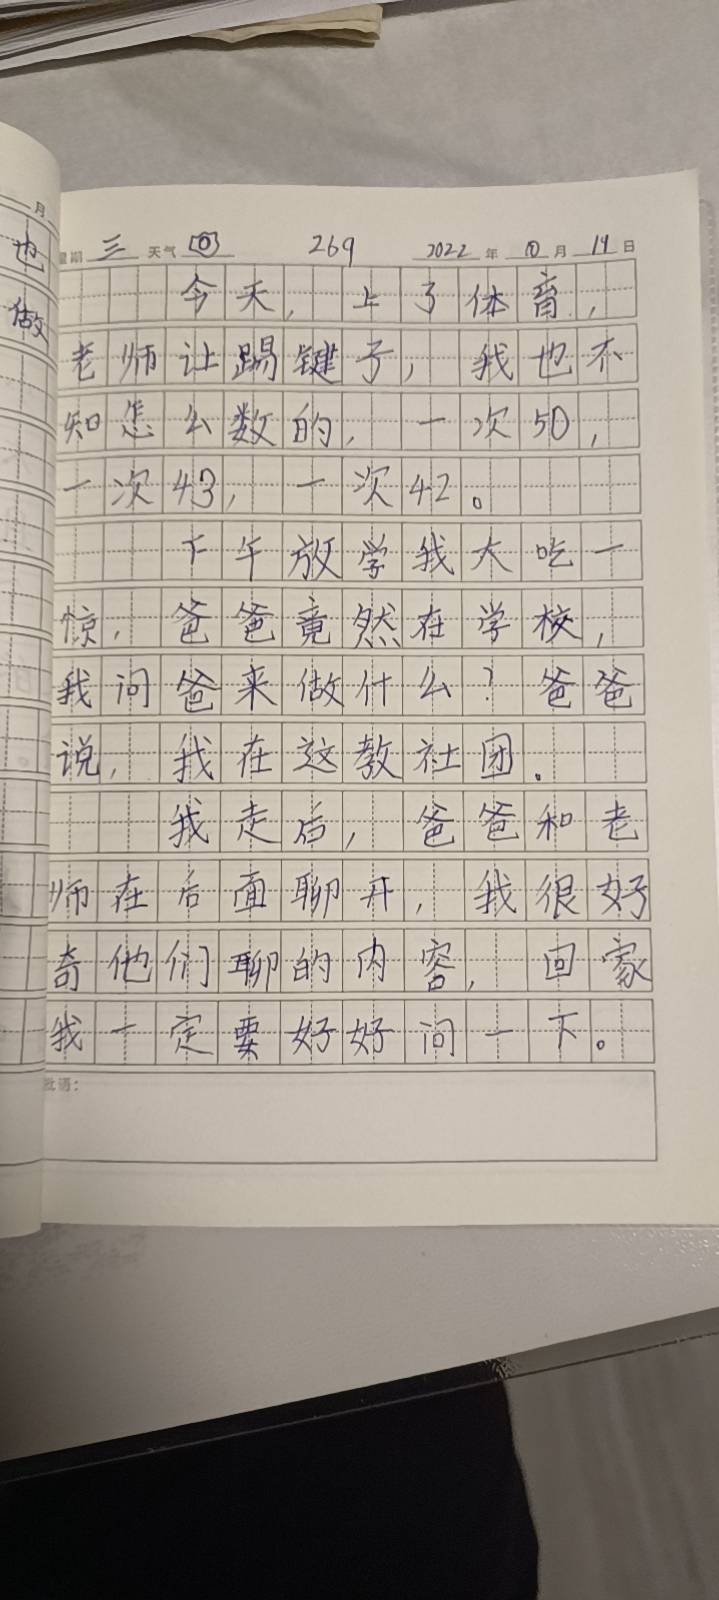 月
也
做
星期 三 天气 269 2022 年 10 月 19 日
今天，上了体育，
老师让踢键子，我也不
知怎么数的，一次50，
一次43，一次42。
下午放学我大吃一
惊，爸爸竟然在学校，
我问爸来做什么？爸爸
说，我在这教社团。
我走后，爸爸和老
师在后面聊开，我很好
奇他们聊的内容，回家
我一定要好好问一下。
批语：